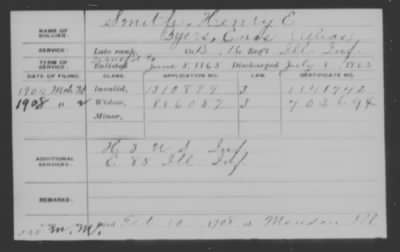 NAME OF SOLDIER: Smith, Henry E.
Byers, Enos (Alias)
SERVICE: Late rank, Co. B, 16 Reg't Ill Inf.
TERM OF SERVICE: Enlisted June 5, 1863 Discharged July 8, 1863
DATE OF FILING. CLASS. APPLICATION NO. LAW. CERTIFICATE NO.
1904 Invalid, 1310879 J 1141742
1908 " 2 Widow, 886057 J
Minor,
ADDITIONAL SERVICES: H 3 U S Inf
E 83 Ill. Inf.
REMARKS:
10, 1908, at Ill